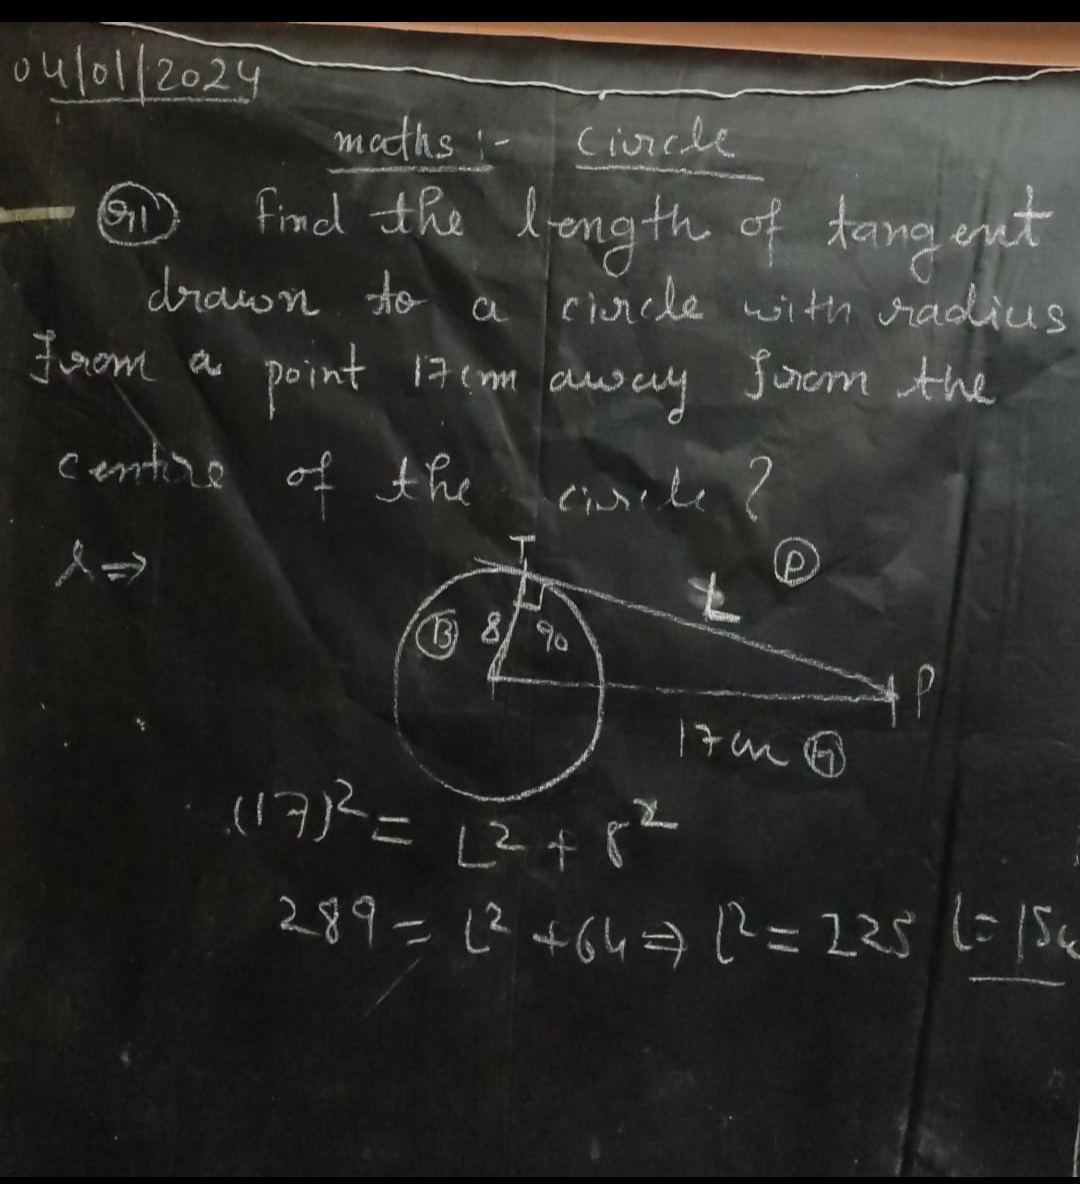 04/01/2024
maths :- Circle
Q1) Find the length of tangent
drawn to a circle with radius
from a point 17cm away from the
centre of the circle ?
⇒
T
P
L
B 8 90
P
17cm H
(17)² = L² + 8²
289 = L² + 64 ⇒ L² = 225 L = 15c